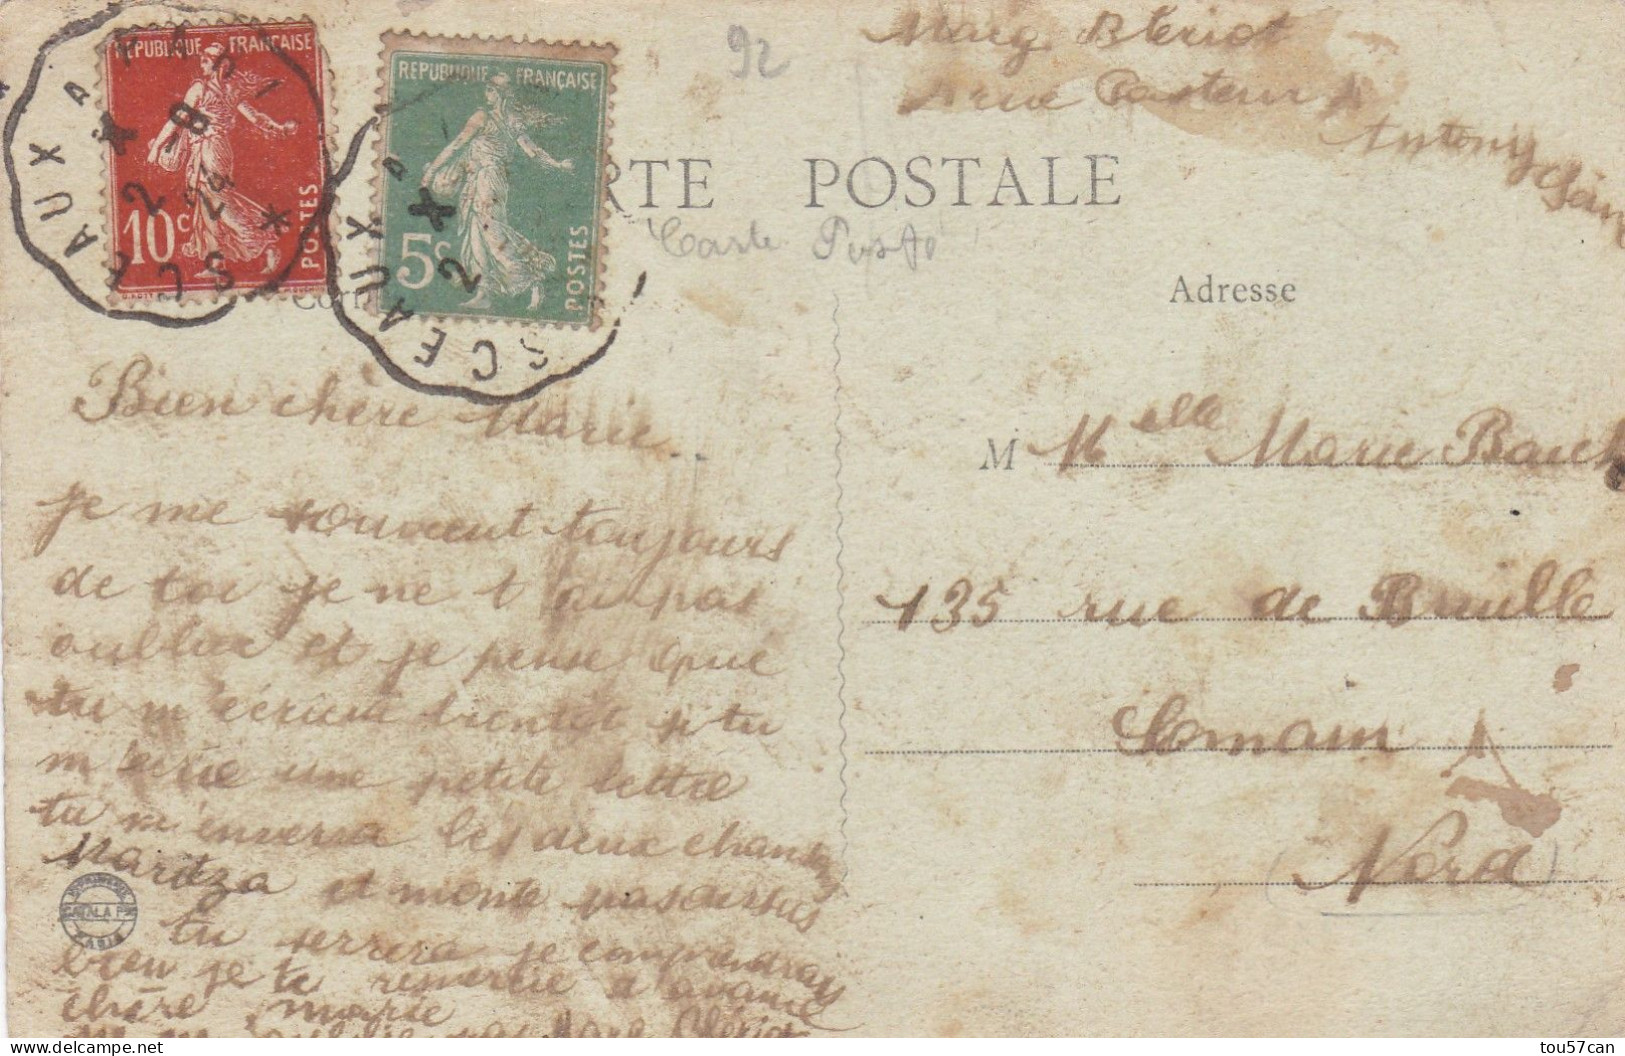 REPUBLIQUE FRANÇAISE
10c
POSTES
REPUBLIQUE FRANÇAISE
5c
POSTES
SCEAUX A
2 -8
24
SCEAUX
2
92
Marg Blériot
rue Pasteur
Antony Sein
RTE POSTALE
Carte Posta
Corr
Adresse
Bien chère Marie
je me souvient toujours
de toi je ne t'ai pas
oublie et je pense que
tu m'écrira bientôt si tu
m'écrie une petite lettre
tu m'enverra les deux chant
et monte pas dessus
tu serrera je comprendrais
bien je te remercie a avance
chère marie
pas Marg Blériot
M Melle Marie Bauch
135 rue de Bruille
Somain
Nord
CATALA F
PARIS
tou57can